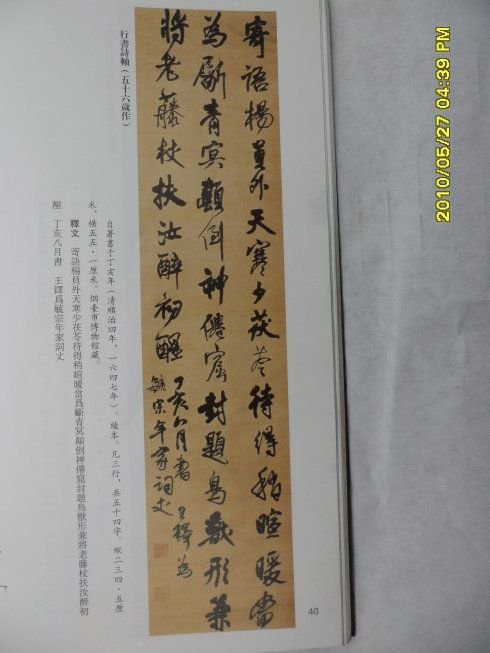 寄語楊員外天寒少茯苓待得稍暄暖當
為斷青冥顛倒神僊窟封題鳥獸形兼
將老藤杖扶汝醉初醒 丁亥八月書 王鐸為
毓宗年家詞丈
行書詩軸(五十六歲作)
自署書于丁亥年(清順治四年,一六四七年)。綾本。凡三行,共五十四字。縱二三四·五厘
米,橫五五·一厘米。烟臺市博物館藏。
釋文 寄語楊員外天寒少茯苓待得稍暄暖當爲斷青冥顛倒神僊窟封題鳥獸形兼將老藤杖扶汝醉初
醒 丁亥八月書 王鐸爲毓宗年家詞丈
40
2010/05/27 04:39 PM